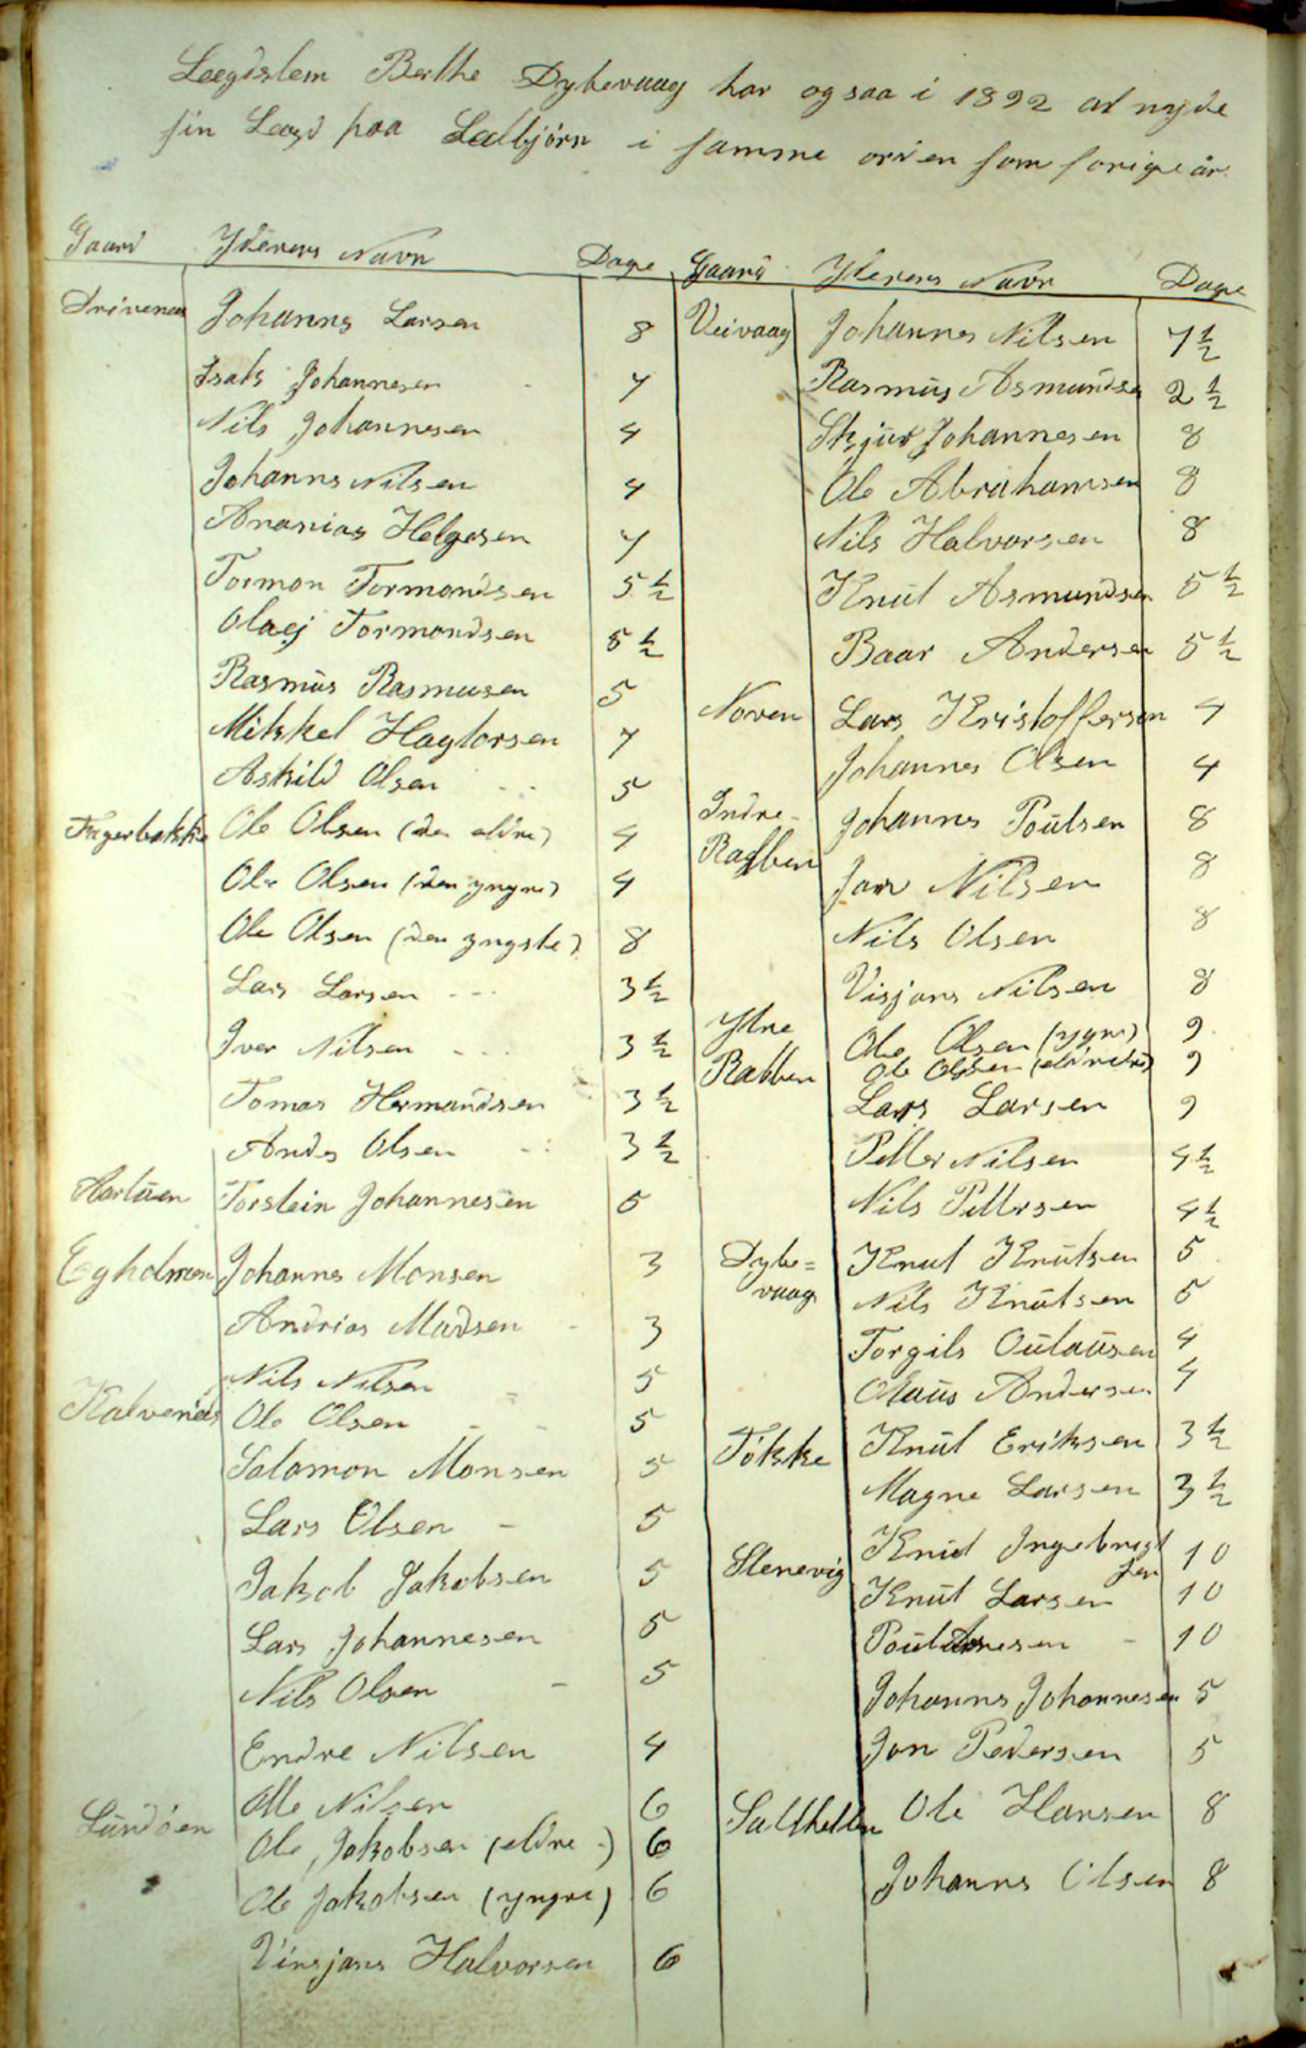 Lægdslem Berthe Dybevaag har ogsaa i 1892 at nyde
sin Lægd paa Lælbjörn i samme orden som forige år.
Gaard Yderens Navn Dage
Drivenes Johanns Larsen 8
Isak Johannesen - 7
Nils Johannesen 4
Johanns Nilsen 4
Ananias Helgesen 7
Tormon Tormondsen 5 1/2
Olaej Tormondsen 5 1/2
Rasmus Rasmusen 5
Mikkel Hagtorsen 7
Askild Olsen - - 5
Fagerbakke Ole Olsen (den eldre) 4
Ole Olsen (den yngre) 4
Ole Olsen (den yngste) 8
Lars Larsen - - - 3 1/2
Iver Nilsen - - - 3 1/2
Tomas Hermandsen 3 1/2
Andes Olsen - - 3 1/2
Torstein Johannesen 5
Egholmen Johannes Monsen 3
Andrias Madsen - 3
Nils Nilsen - 5
Kalvenes Ole Olsen - - 5
Salomon Monsen 5
Lars Olsen - 5
Jakob Jakobsen 5
Lars Johannesen 5
Nils Olsen - 5
Endre Nilsen 4
Ole Nilsen 6
Lundöen Ole Jakobsen (eldre -) 6
Ole Jakobsen (yngre) 6
Vinsjans Halvorsen 6
Gaard Yderens Navn Dage
Veivaag Johannes Nilsen 7 1/2
Rasmus Asmundsen 2 1/2
Skjur Johannesen 8
Ole Abrahamsen 8
Nils Halvorsen 8
Knut Asmundsen 5 1/2
Baar Andersen 5 1/2
Noven Lars Kristoffersen 4
Johannes Olsen 4
Indre- Johannes Poulsen 8
Rabben Jon Nilsen 8
Nils Olsen 8
Visjans Nilsen 8
Ytre Ole Olsen (yngre) 9
Rabben Ole Olsen 9
Lars Larsen 9
Petter Nilsen 4 1/2
Nils Pettersen 4 1/2
Dybe= Knut Knutsen 5
vaag Nils Knutsen 5
Torgils Oulausen 4
Olaus Andersen 4
Tökke Knut Eriksen 3 1/2
Magne Larsen 3 1/2
Stenevig Knut Ingebrigt
sen 10
Knut Larsen 10
Poul Arnesen - 10
Johanns Johannesen 5
Jon Pedersen 5
Salthellen Ole Hansen 8
Johanns Olsen 8